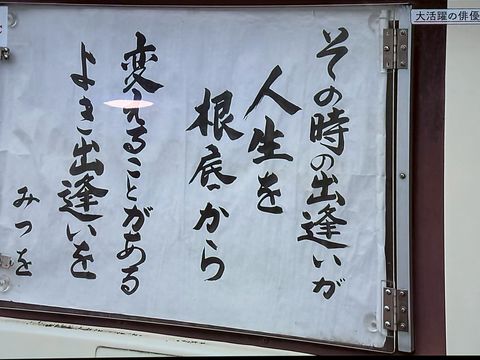 その時の出逢いが
人生を
根底から
変えることがある
よき出逢いを
みつを
大活躍の俳優